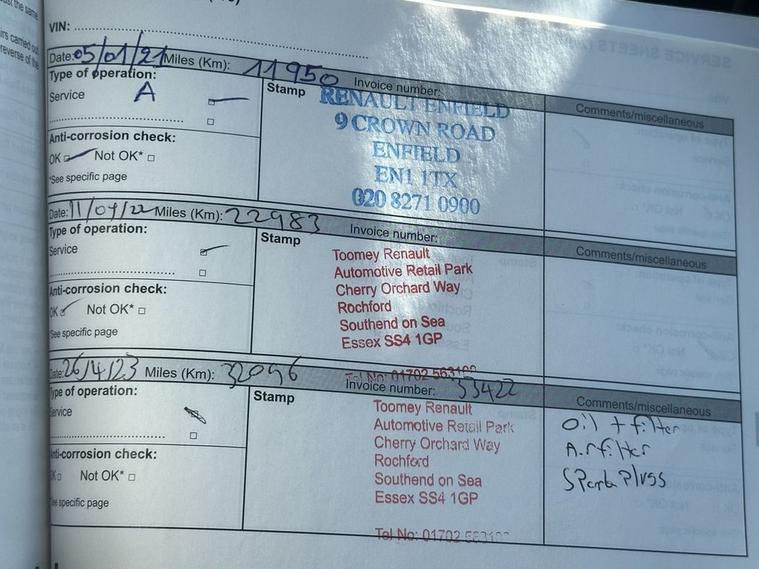 VIN:
Date: 05/01/21 Miles (Km): 11950 Invoice number:
Type of operation:
Service A
Anti-corrosion check:
OK Not OK*
*See specific page
Stamp
RENAULT ENFIELD
9 CROWN ROAD
ENFIELD
EN1 1TX
020 8271 0900
Comments/miscellaneous
Date: 11/04/22 Miles (Km): 22983 Invoice number:
Type of operation:
Service
Anti-corrosion check:
OK Not OK*
*See specific page
Stamp
Toomey Renault
Automotive Retail Park
Cherry Orchard Way
Rochford
Southend on Sea
Essex SS4 1GP
Tel No: 01702
Comments/miscellaneous
Date: 26/4/23 Miles (Km): 32096 Invoice number: 53422
Type of operation:
Service
Anti-corrosion check:
Not OK*
See specific page
Stamp
Toomey Renault
Automotive Retail Park
Cherry Orchard Way
Rochford
Southend on Sea
Essex SS4 1GP
Tel No: 01702
Comments/miscellaneous
Oil + filter
Air filter
Spark Plugs